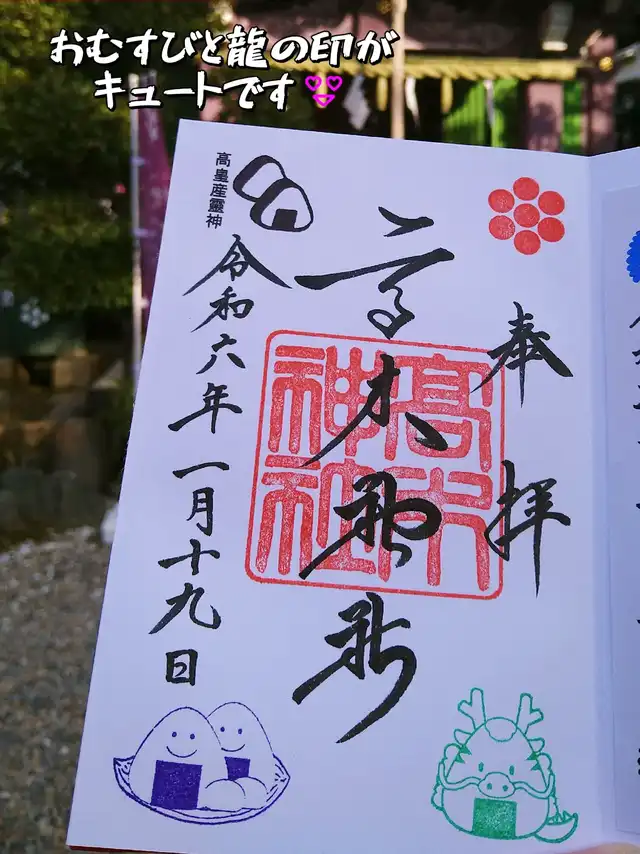 おむすびと龍の印が
キュートです
奉拝
高木神社
高木
神社
令和六年一月十九日
高皇産靈神